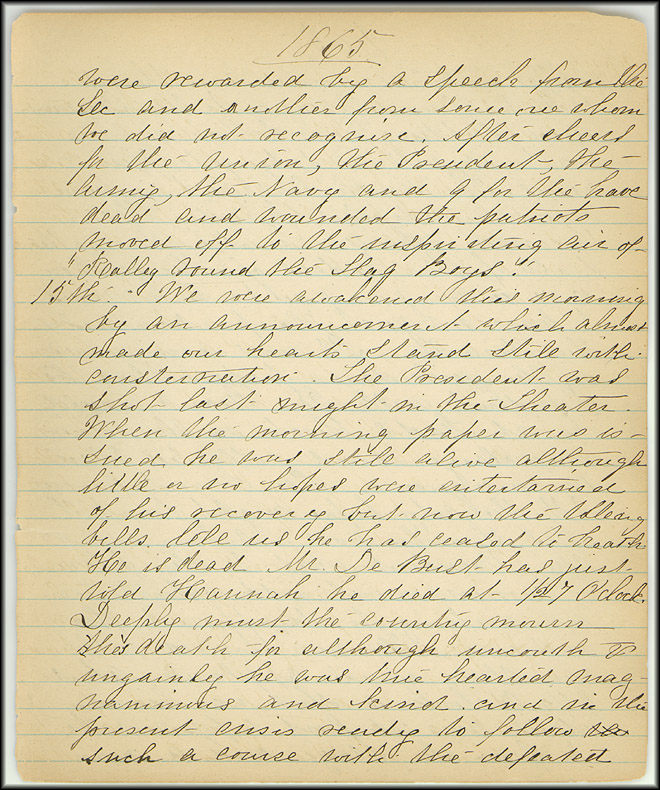 1865
were rewarded by a speech from the
Sec and another from some one whom
we did not recognise. After cheers
for the Union, the President, the
Army, the Navy and 9 for the brave
dead and wounded the patriots
moved off to the inspiriting air of
"Ralley round the Flag Boys."
15th. We were awakened this morning
by an announcement which almost
made our hearts stand still with
consternation. The President was
shot last night in the Theater.
When the morning paper was is-
sued he was still alive although
little or no hopes were entertained
of his recovery but now the tolling
bells tole us he has ceased to breath
He is dead Mr. De Bust has just
told Hannah he died at 1/2 7 O'clock.
Deeply must the country mourn
this death for although uncouth &
ungainly he was true hearted mag-
nanimous and kind and in the
present crisis ready to follow
such a course with the defeated